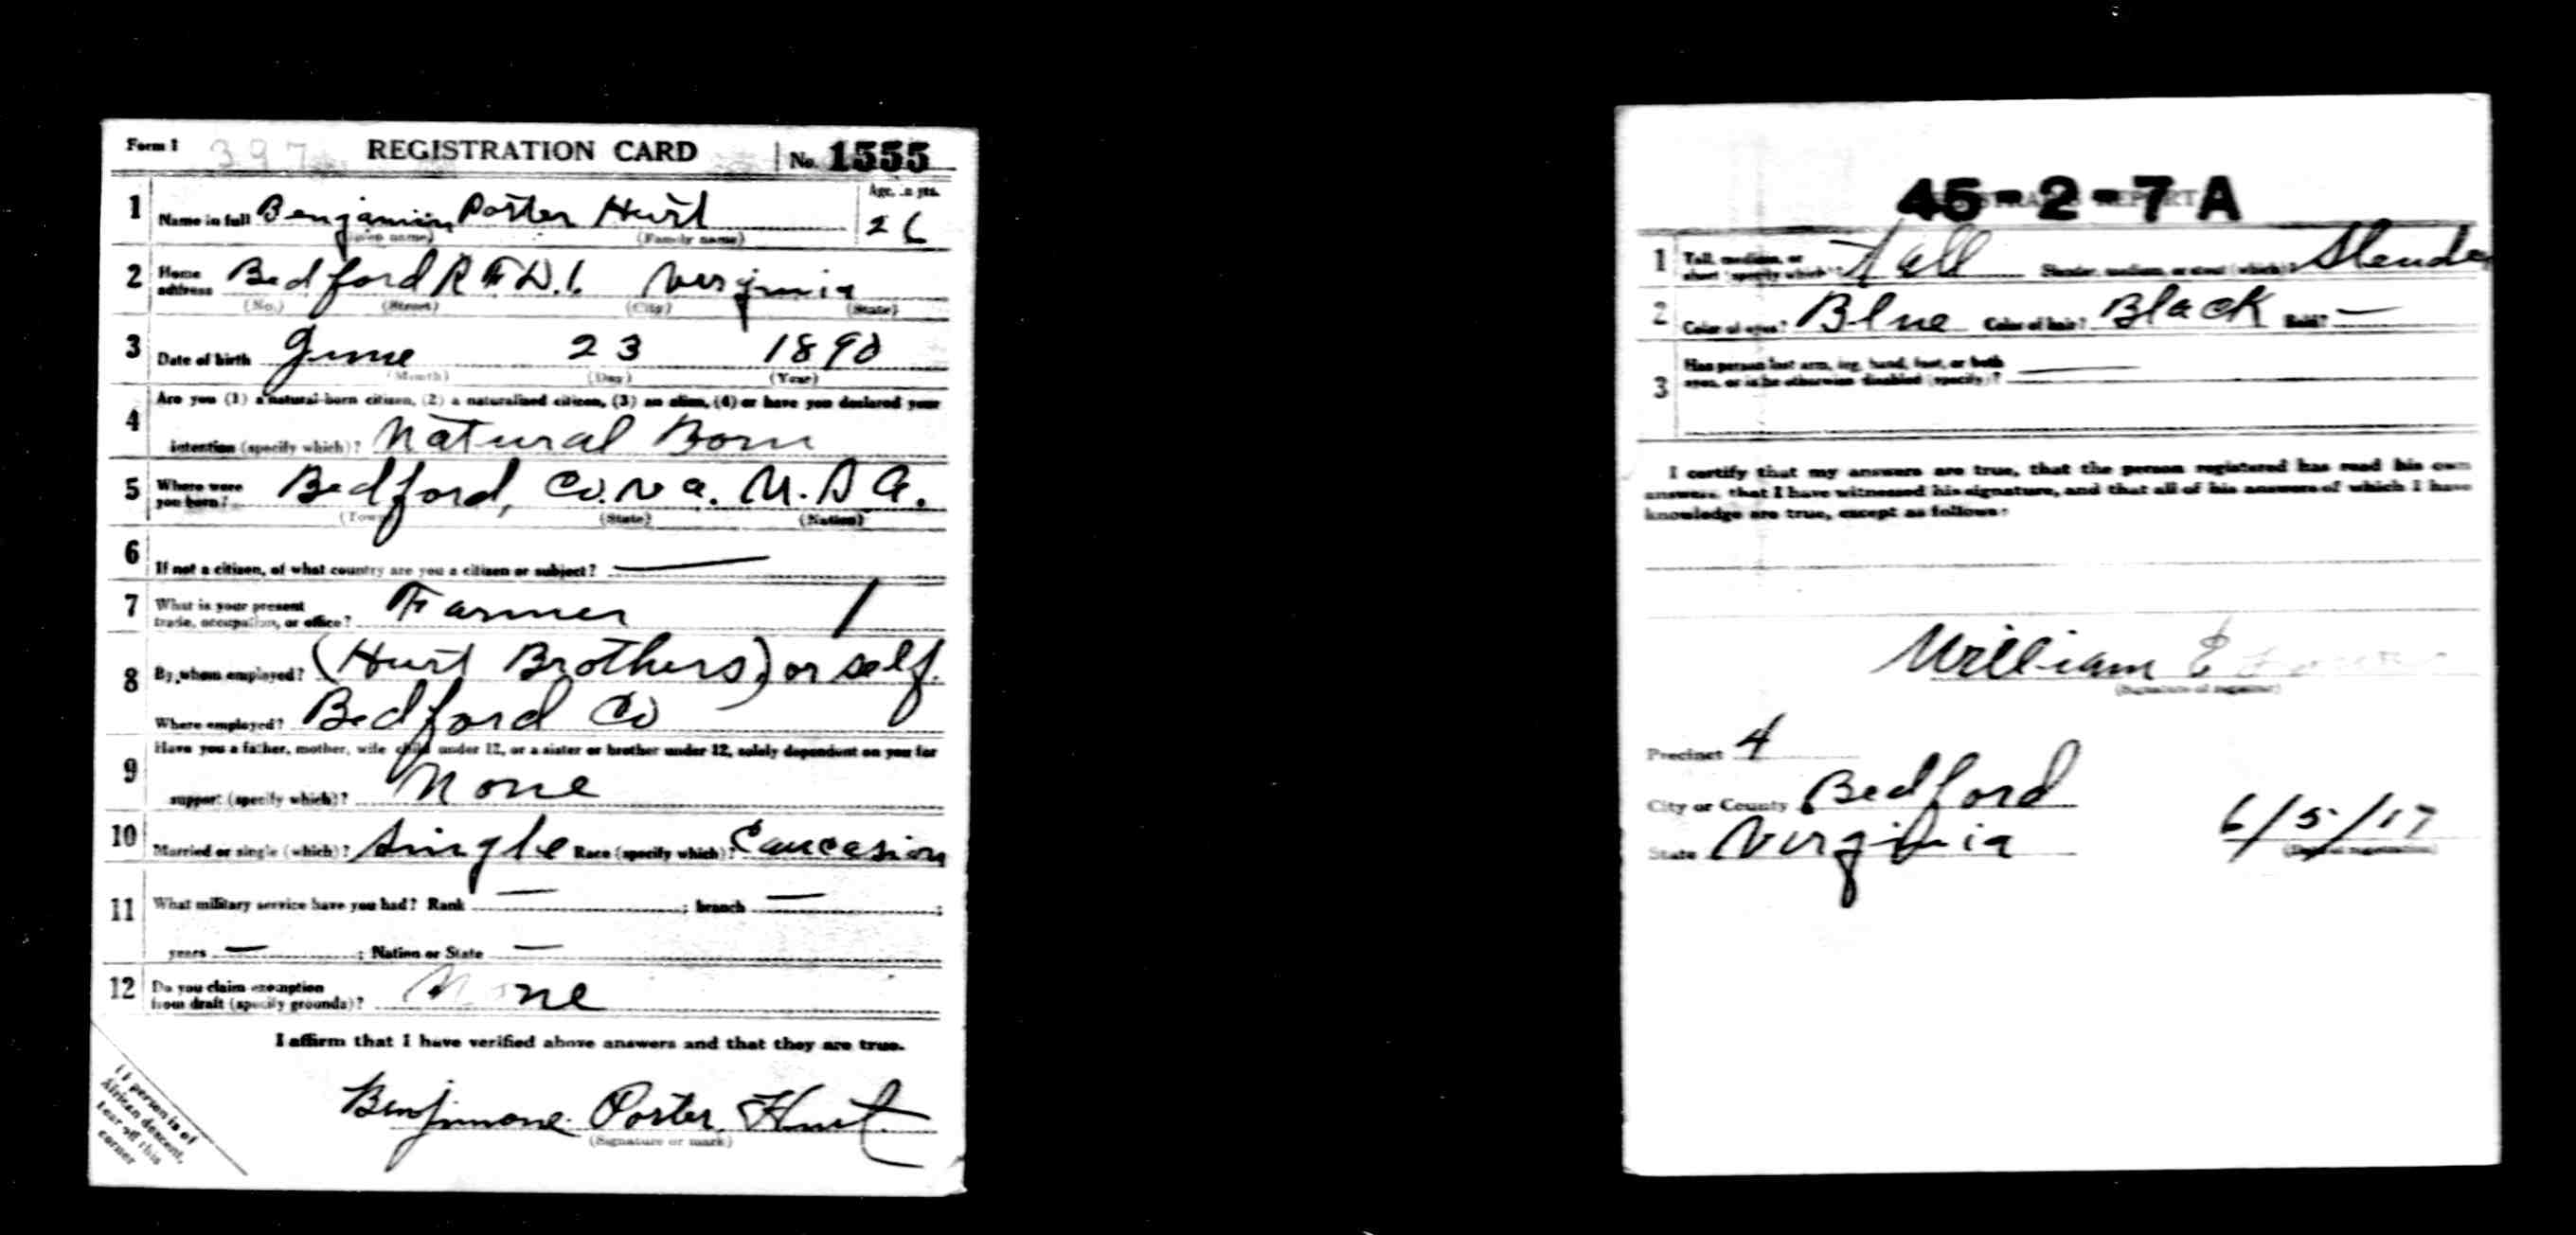 Form 1 397 REGISTRATION CARD No. 1555
1 Name in full Benjamin Porter Hurt Age, in yrs. 26
(Given name) (Family name)
2 Home address Bedford R F D.1. Virginia
(No.) (Street) (City) (State)
3 Date of birth June 23 1890
(Month) (Day) (Year)
Are you (1) a natural-born citizen, (2) a naturalized citizen, (3) an alien, (4) or have you declared your
4 intention (specify which)? Natural Born
5 Where were you born? Bedford, Co. Va. U.S A.
(Town) (State) (Nation)
6 If not a citizen, of what country are you a citizen or subject? —
7 What is your present trade, occupation, or office? Farmer /
8 By whom employed? (Hurt Brothers) or self.
Where employed? Bedford Co
Have you a father, mother, wife child under 12, or a sister or brother under 12, solely dependent on you for
9 support (specify which)? None
10 Married or single (which)? Single Race (specify which)? Caucasion
11 What military service have you had? Rank — ; branch — ;
years — ; Nation or State —
12 Do you claim exemption from draft (specify grounds)? None
I affirm that I have verified above answers and that they are true.
Benjimone Porter Hurt
(Signature or mark)
If person is of
African descent,
tear off this
corner
45-2-7 A
1 Tall, medium, or short (specify which)? Tall Slender, medium, or stout (which)? Slender
2 Color of eyes? Blue Color of hair? Black Bald? —
3 Has person lost arm, leg, hand, foot, or both eyes, or is he otherwise disabled (specify)? —
I certify that my answers are true, that the person registered has read his own
answers, that I have witnessed his signature, and that all of his answers of which I have
knowledge are true, except as follows:
William E
(Signature of registrar)
Precinct 4
City or County Bedford
State Virginia 6/5/17
(Date of registration)